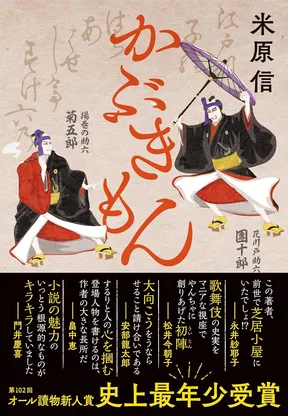 米原信
かぶきもん
揚巻の助六
菊五郎
花川戸助六
團十郎
この著者、
前世で芝居小屋に
いたでしょ!?
――永井紗耶子
歌舞伎の史実を
マニアな視座で
やんちゃに
創りあげた初陣
――松井今朝子
大向こうをうなら
せること請け合いである
――安部龍太郎
するりと人の心を掴む
登場人物を書けるのは、
作者の大きな長所
――畠中恵
小説の魅力の
いっとう根源的なものが
キラキラしていました
――門井慶喜
第102回
オール讀物新人賞
史上最年少受賞